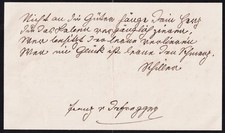 Nicht an die Güter hänge dein Herz
Die das Leben vergänglich zieren,
Wer besitzt der lerne verlieren
Wer im Glück ist lerne den Schmerz.
Schiller
Franz v Defregger